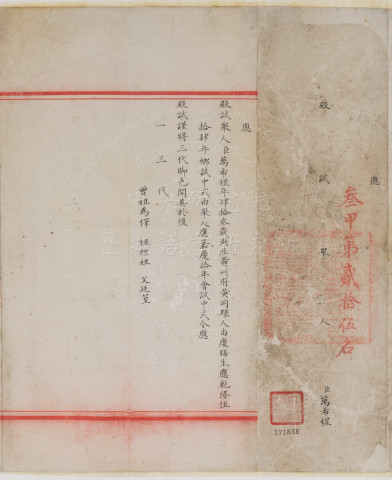 應
殿試舉人
臣萬希煜
叁甲第貳拾伍名
171838
應
殿試舉人臣萬希煜年肆拾叁歲湖北黃州府黃岡縣人由廩膳生應乾隆伍
拾肆年鄉試中式由舉人應嘉慶拾年會試中式今應
殿試謹將三代脚色開具於後
一三代
曾祖為惲 祖 父廷